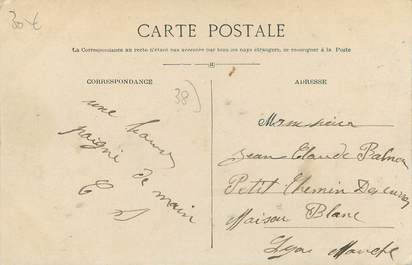 30 €
CARTE POSTALE
La Correspondance au recto n'étant pas acceptée par tous les pays étrangers, se renseigner à la Poste
CORRESPONDANCE
ADRESSE
38)
une bonne
poigné de main
Monsieur
Jean Claude
Petit Chemin
Maison Blanc
Lyon